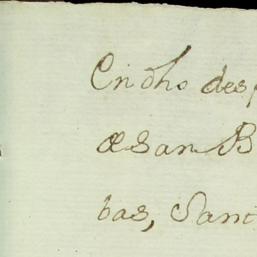 En dho des
de San B
bas, Sant